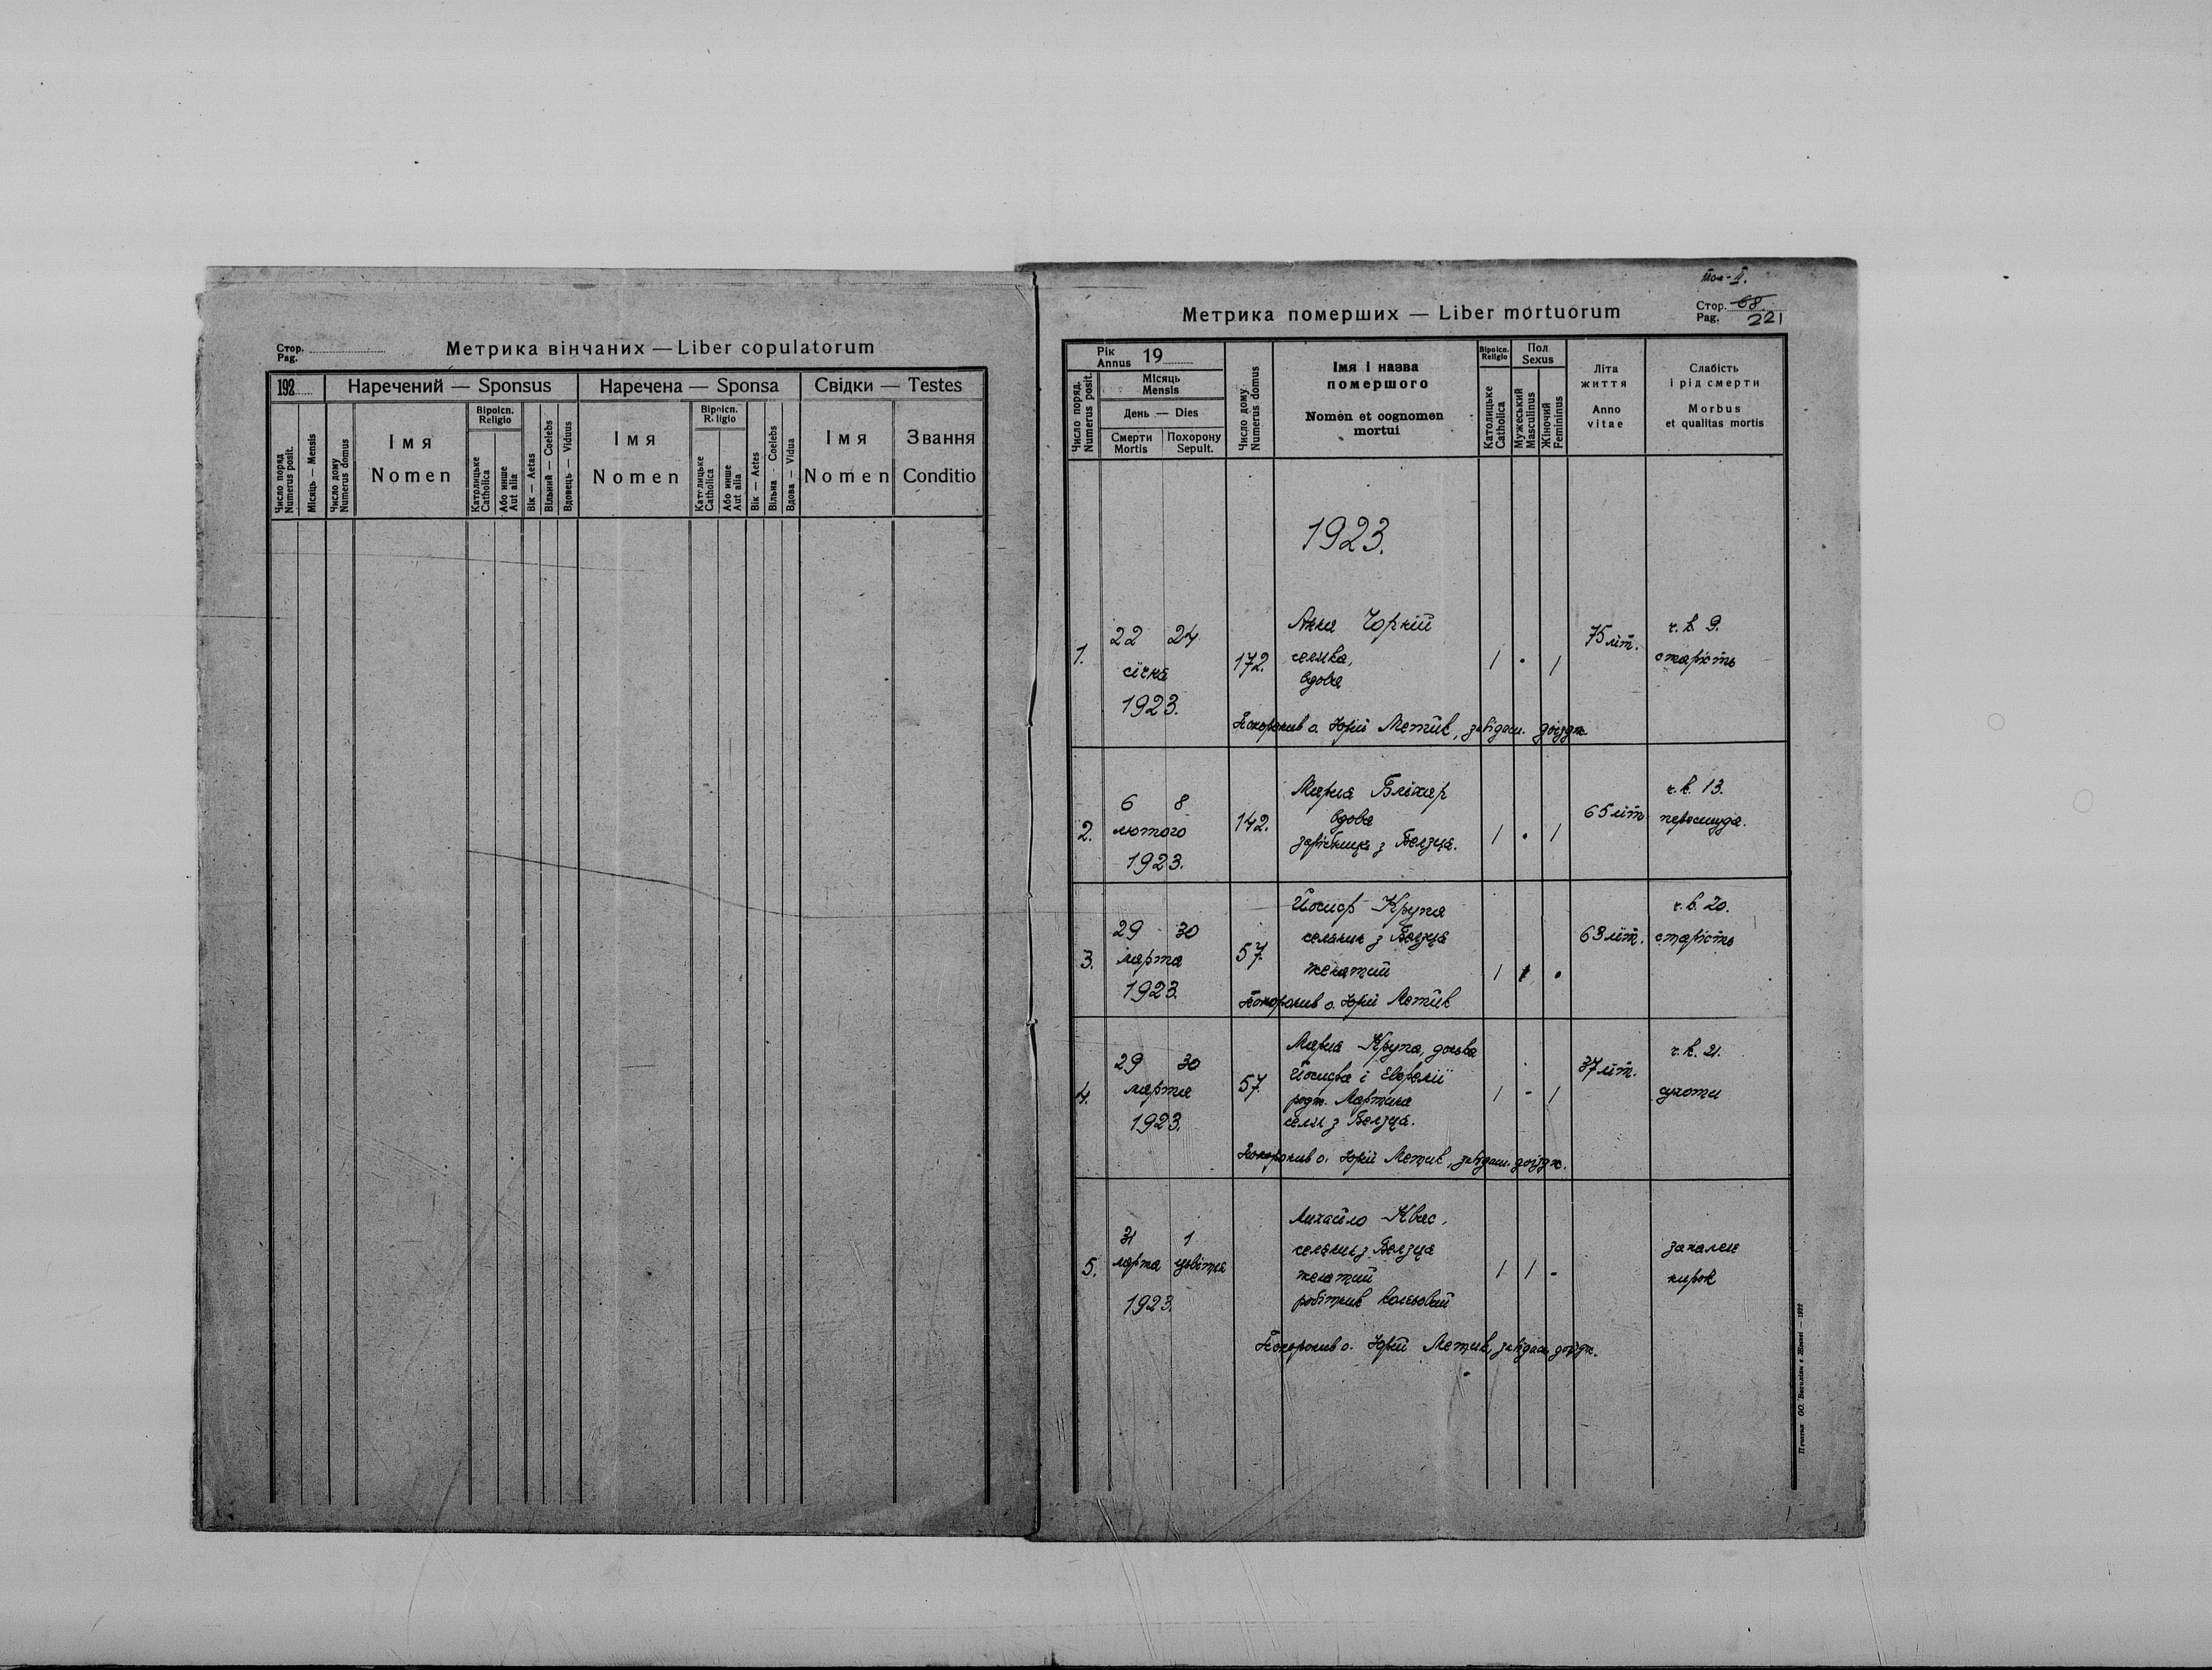 Стор.
Pag.
Метрика вінчаних — Liber copulatorum
192
Наречений — Sponsus
Наречена — Sponsa
Свідки — Testes
Число поряд
Numerus posit.
Місяць — Mensis
Число дому
Numerus domus
Імя
Nomen
Віроісп.
Religio
Католицьке
Catholica
Або инше
Aut alia
Вік — Aetas
Вільний — Coelebs
Вдовець — Viduus
Імя
Nomen
Віроісп.
R. ligio
Католицьке
Catholica
Або инше
Aut alia
Вік — Aetes
Вільна - Coelebs
Вдова — Vidua
Імя
Nomen
Звання
Conditio
Метрика померших — Liber mortuorum
Стор. 68
Pag. 221
Рік
Annus 19
Число поряд.
Numerus posit.
Місяць
Mensis
День — Dies
Смерти
Mortis
Похорону
Sepult.
Число дому
Numerus domus
Імя і назва
помершого
Nomen et cognomen
mortui
Віроісп.
Religio
Католицьке
Catholica
Пол
Sexus
Мужеський
Masculinus
Жіночий
Femininus
Літа
життя
Anno
vitae
Слабість
і рід смерти
Morbus
et qualitas mortis
1923.
1.
22 24
січня
1923.
172.
Анна Чорній
селянка,
вдова
/ . /
75 літ.
ч. в. 9.
старість
Похоронив о. Юрій Метців, завідат. доїзд.
2.
6 8
лютого
1923.
142.
Мария Бліхар
вдова
зарібниця з Белзця.
/ . /
65 літ
ч. в. 13.
3.
29 30
марта
1923.
57.
Йосиф Крупа
селянин з Белзця
женатий
/ / .
63 літ.
ч. в. 20.
старість
Похоронив о. Юрій
4.
29 30
марта
1923.
57.
Мария Крупа, донька
Йосифа і
родж. Мартина
селян з Белзця.
/ - /
37 літ.
ч. в. 21.
сухоти
Похоронив о. Юрій
5.
31 1
марта цвітня
1923.
Михайло Квас,
селянин з Белзця
женатий
робітник кольєвий
/ / -
запален
нирок
Похоронив о. Юрій
Печатня ОО. Василіян в Жовкві — 1922